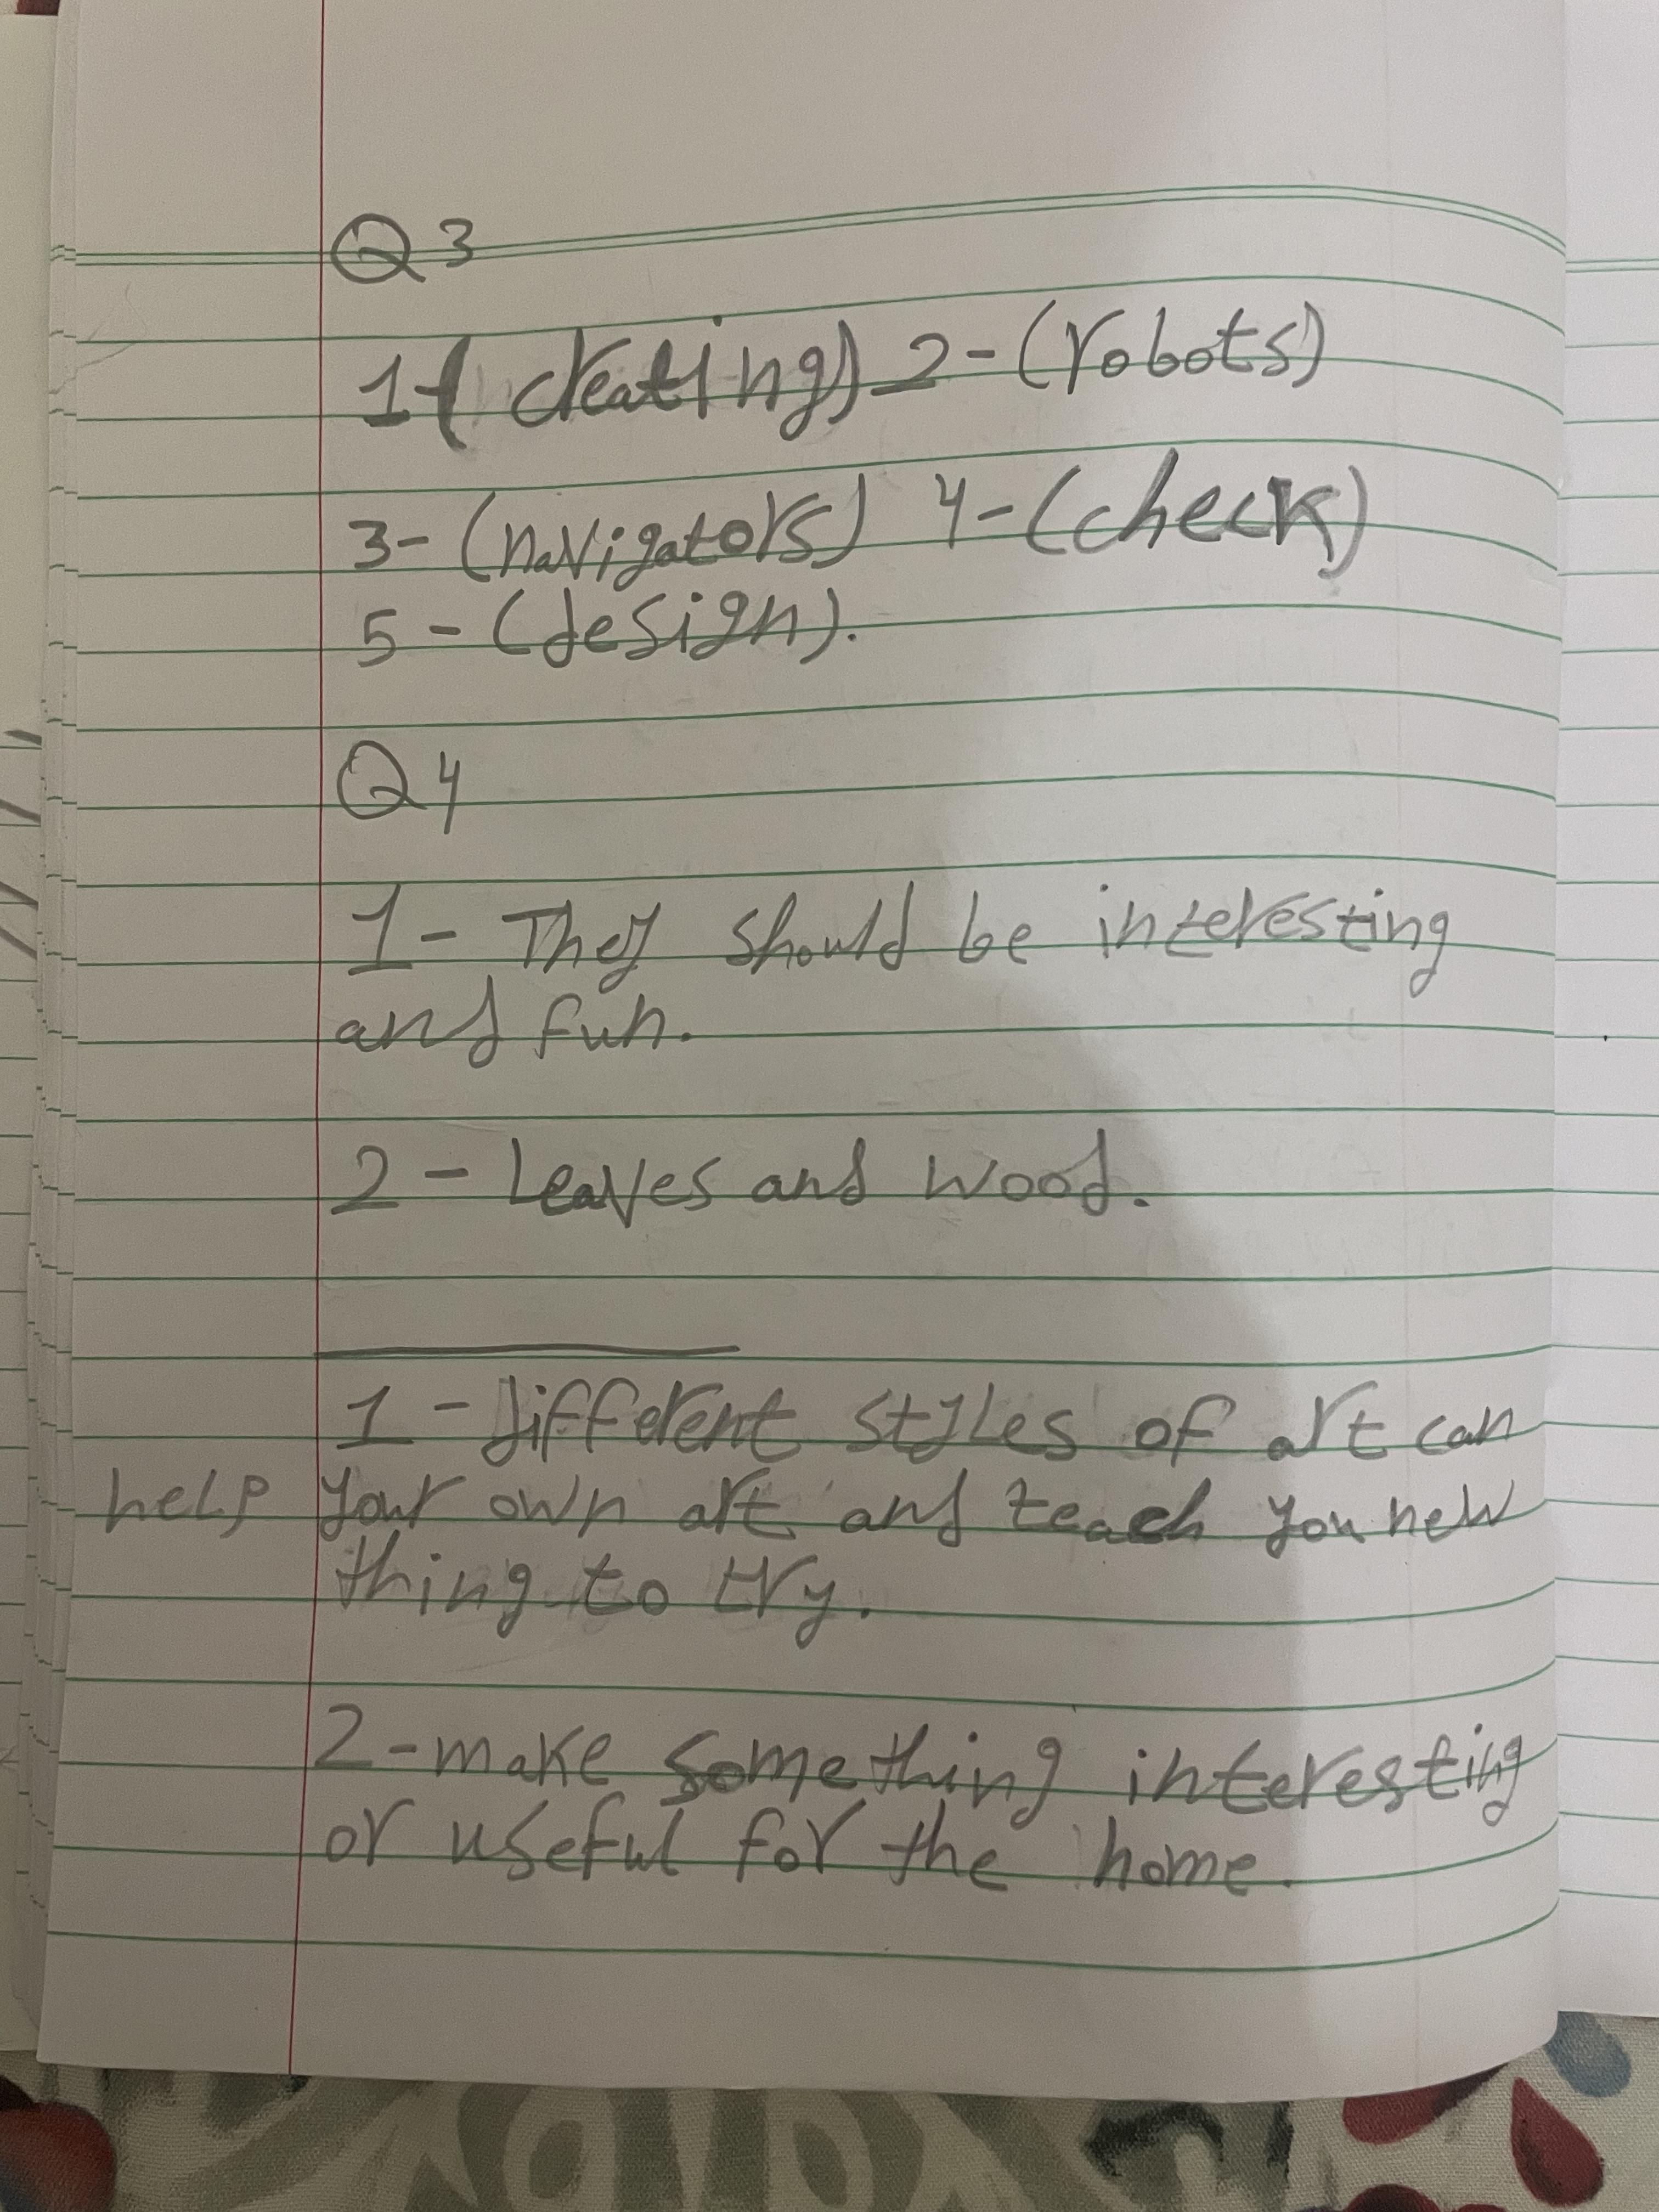 Q3
1-(creating) 2-(robots)
3-(navigators) 4-(check)
5-(design).
Q4
1- They should be interesting
and fun.
2- Leaves and wood.
1- Different styles of art can
help your own art and teach you new
thing to try.
2-make something interesting
or useful for the home.